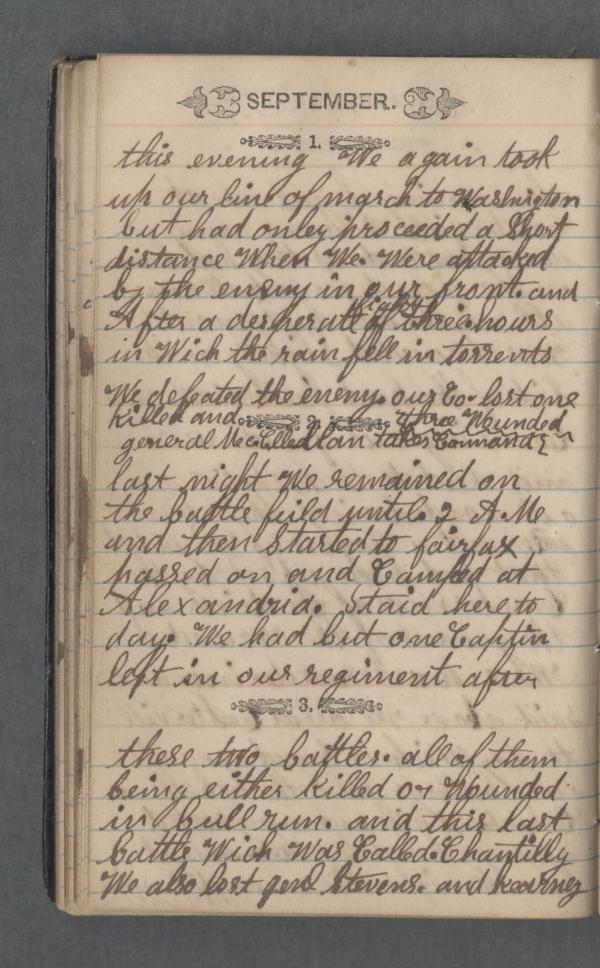 SEPTEMBER.
1.
this evening We again took
up our line of march to Washington
but had onley proceeded a Short
distance When We. Were attacked
by the enemy in our front. and
fight
After a desperate of three hours
in Wich the rain fell in torrents
We defeated the enemy. our Co. lost one
killed and three Wounded
2.
general McClledlan takes Command
last night We remained on
the battle feild until 2 A.M
and then Started to fairfax
passed on and Camped at
Alexandria. Staid here to
day. We had but one Captin
left in our regiment after
3.
these two battles. all of them
being either killed or Wounded
in bull run. and this last
battle Wich Was Called. Chantilly
We also lost genl Stevens. and kearney